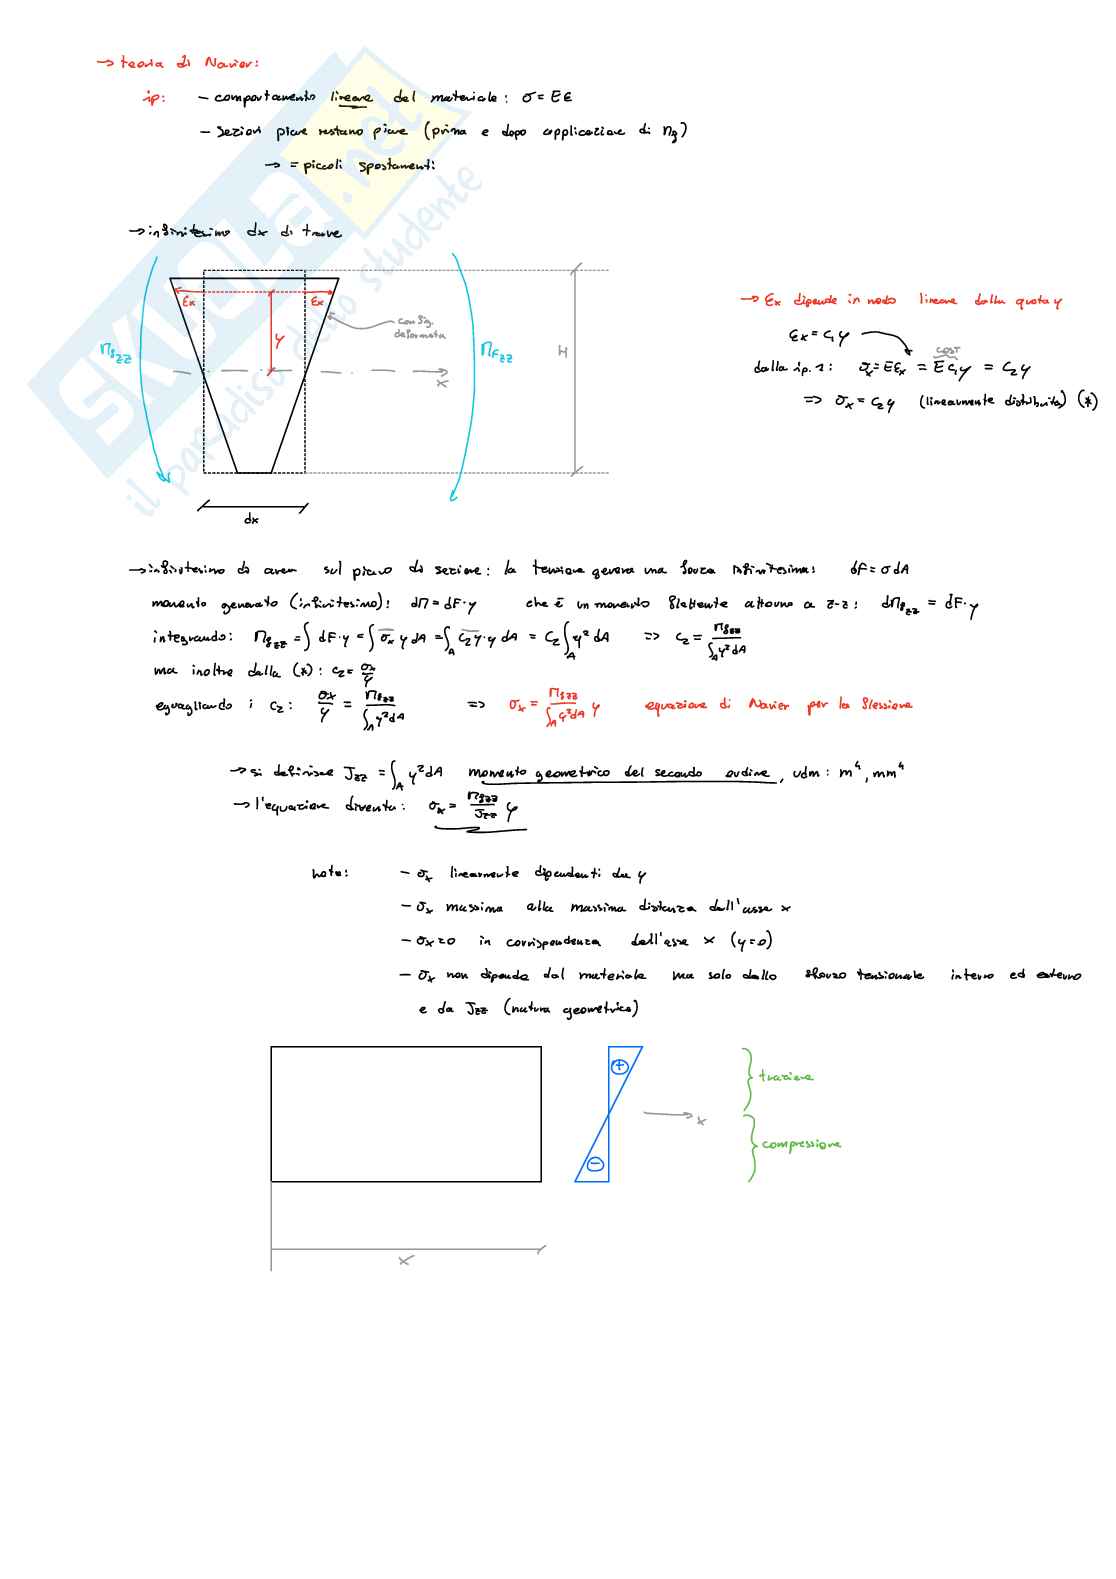 → teoria di Navier:
ip: - comportamento lineare del materiale: σ = Eε
- sezioni piane restano piane (prima e dopo applicazione di Mf)
→ = piccoli spostamenti
→ infinitesimo dx di trave
εx εx
config. deformata
y
Mfzz Mfzz
H
x
dx
→ εx dipende in modo lineare dalla quota y
εx = c1 y
cost
dalla ip. 1: σx = Eεx = E c1 y = c2 y
=> σx = c2 y (linearmente distribuita) (*)
→ infinitesimo di area sul piano di sezione: la tensione genera una forza infinitesima: dF = σ dA
momento generato (infinitesimo): dM = dF·y che è un momento flettente attorno a z-z: dMfzz = dF·y
integrando: Mfzz = ∫ dF·y = ∫ σx y dA = ∫A c2 y·y dA = c2 ∫A y² dA => c2 = Mfzz / ∫A y² dA
ma inoltre dalla (*): c2 = σx / y
eguagliando i c2: σx / y = Mfzz / ∫A y² dA => σx = Mfzz / ∫A y² dA y equazione di Navier per la flessione
→ si definisce Jzz = ∫A y² dA momento geometrico del secondo ordine, udm: m⁴, mm⁴
→ l'equazione diventa: σx = Mfzz / Jzz y
note: - σx linearmente dipendenti da y
- σx massima alla massima distanza dall'asse x
- σx = 0 in corrispondenza dell'asse x (y=0)
- σx non dipende dal materiale ma solo dallo sforzo tensionale interno ed esterno
e da Jzz (natura geometrica)
+
trazione
x
compressione
−
x
SKUOLA.net
il paradiso dello studente